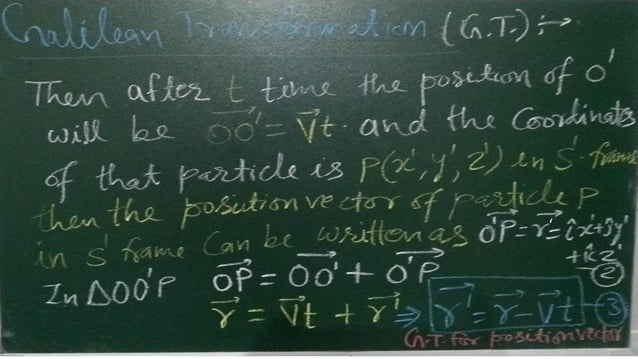 Galilean Transformation (G.T.) :→
Then after t time the position of O'
will be OO⃗' = V⃗t. and the Coordinates
of that particle is P(x',y',z') in S'-frame
then the position vector of particle P
in S' frame Can be written as O'P⃗ = r⃗' = îx'+ĵy'
+k̂z' ②
In ΔOO'P OP⃗ = OO⃗' + O'P⃗
r⃗ = V⃗t + r⃗' ⇒ r⃗' = r⃗ - V⃗t ③
G.T. for position vector